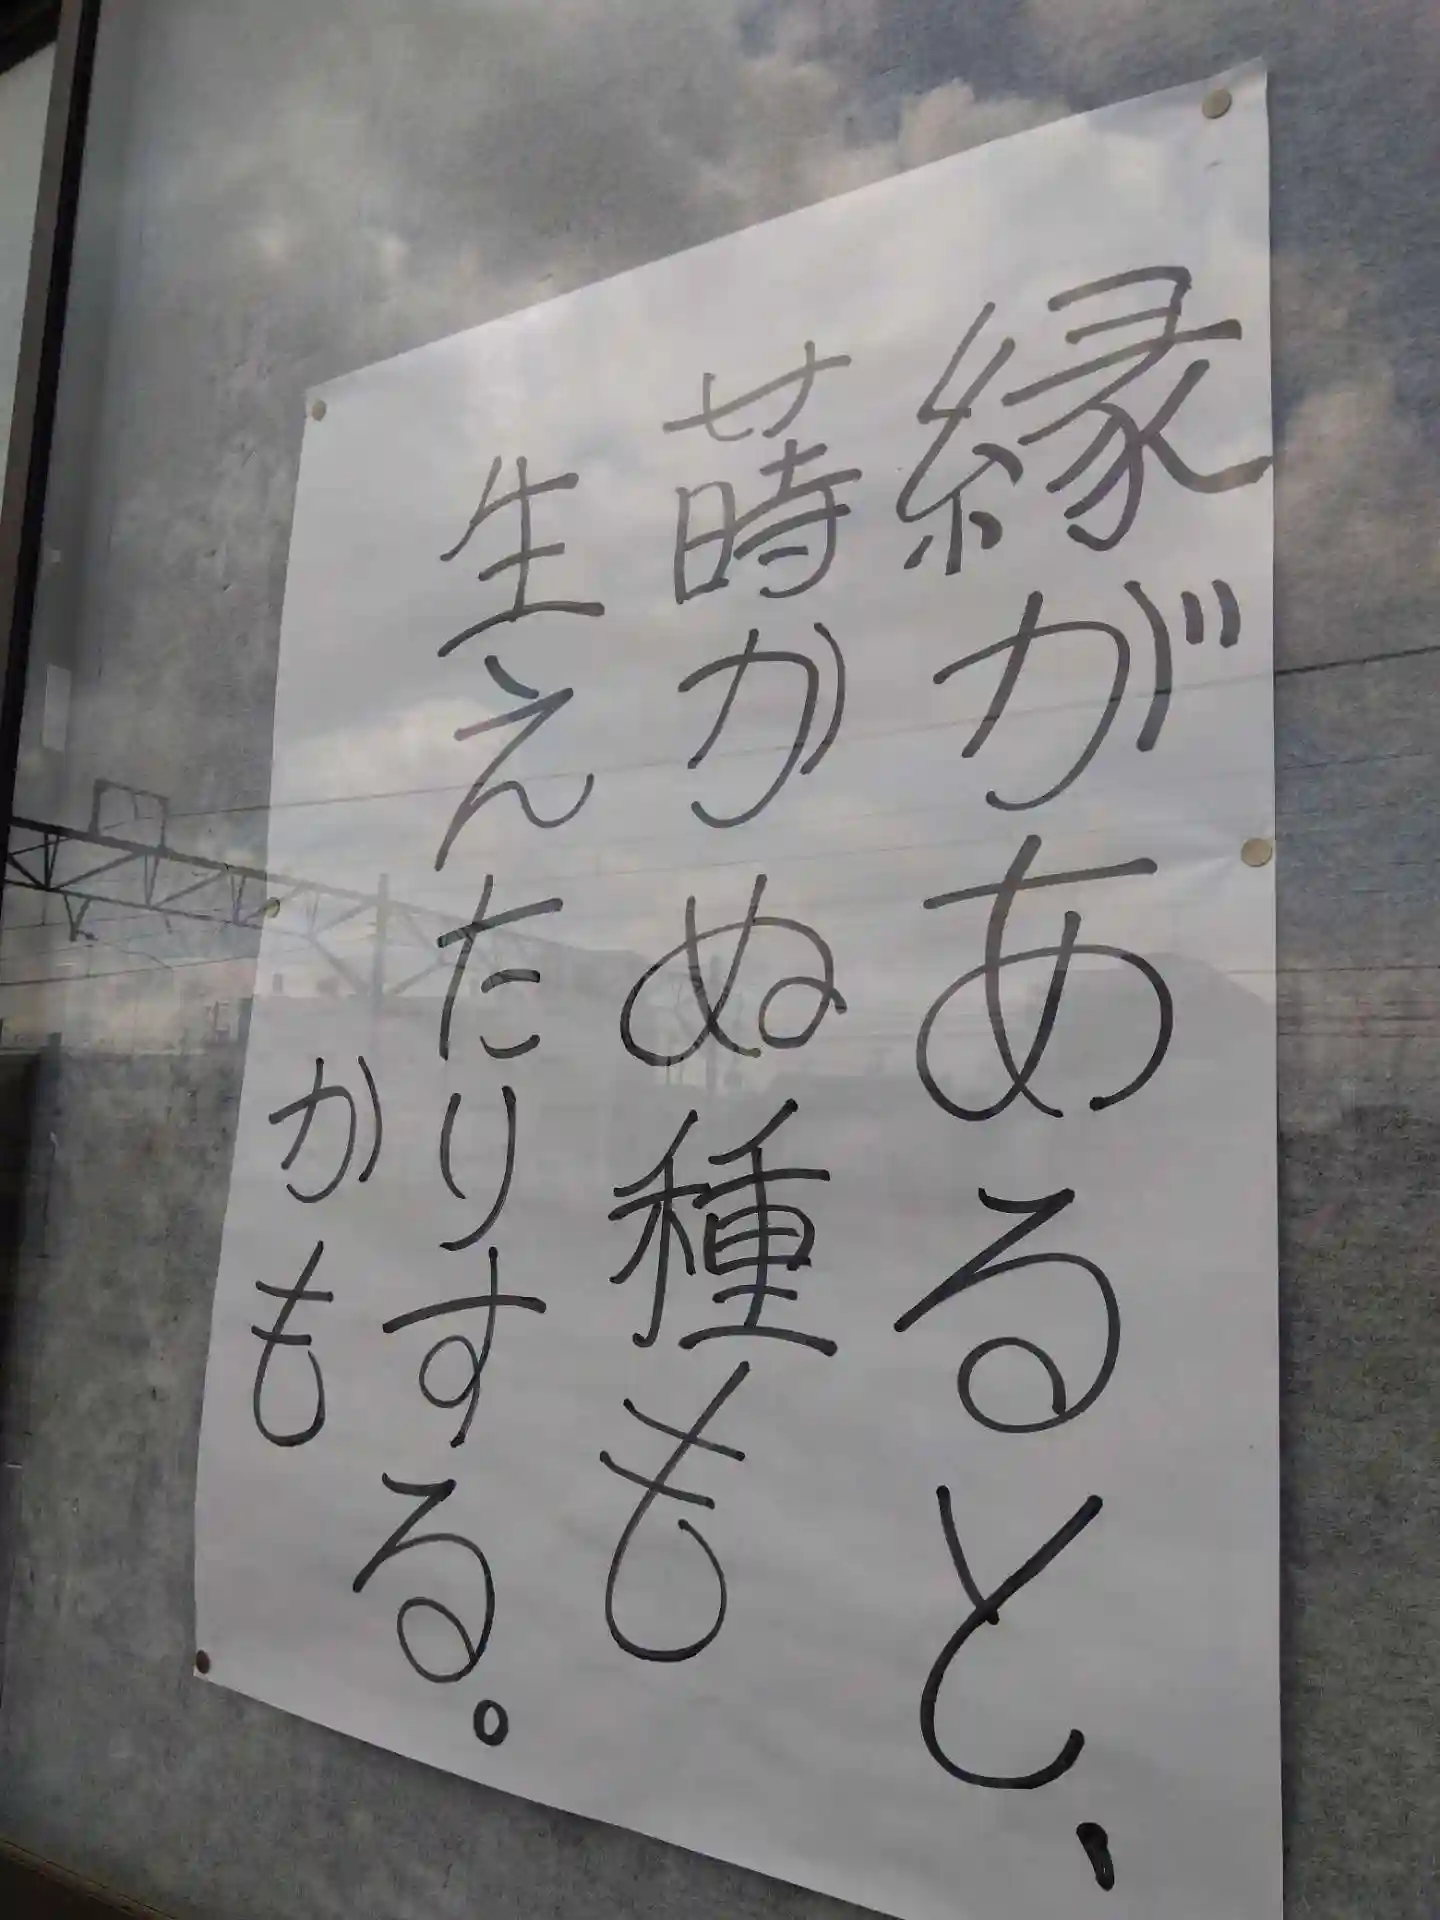 縁があると、
蒔かぬ種も
生えたりする。
かも